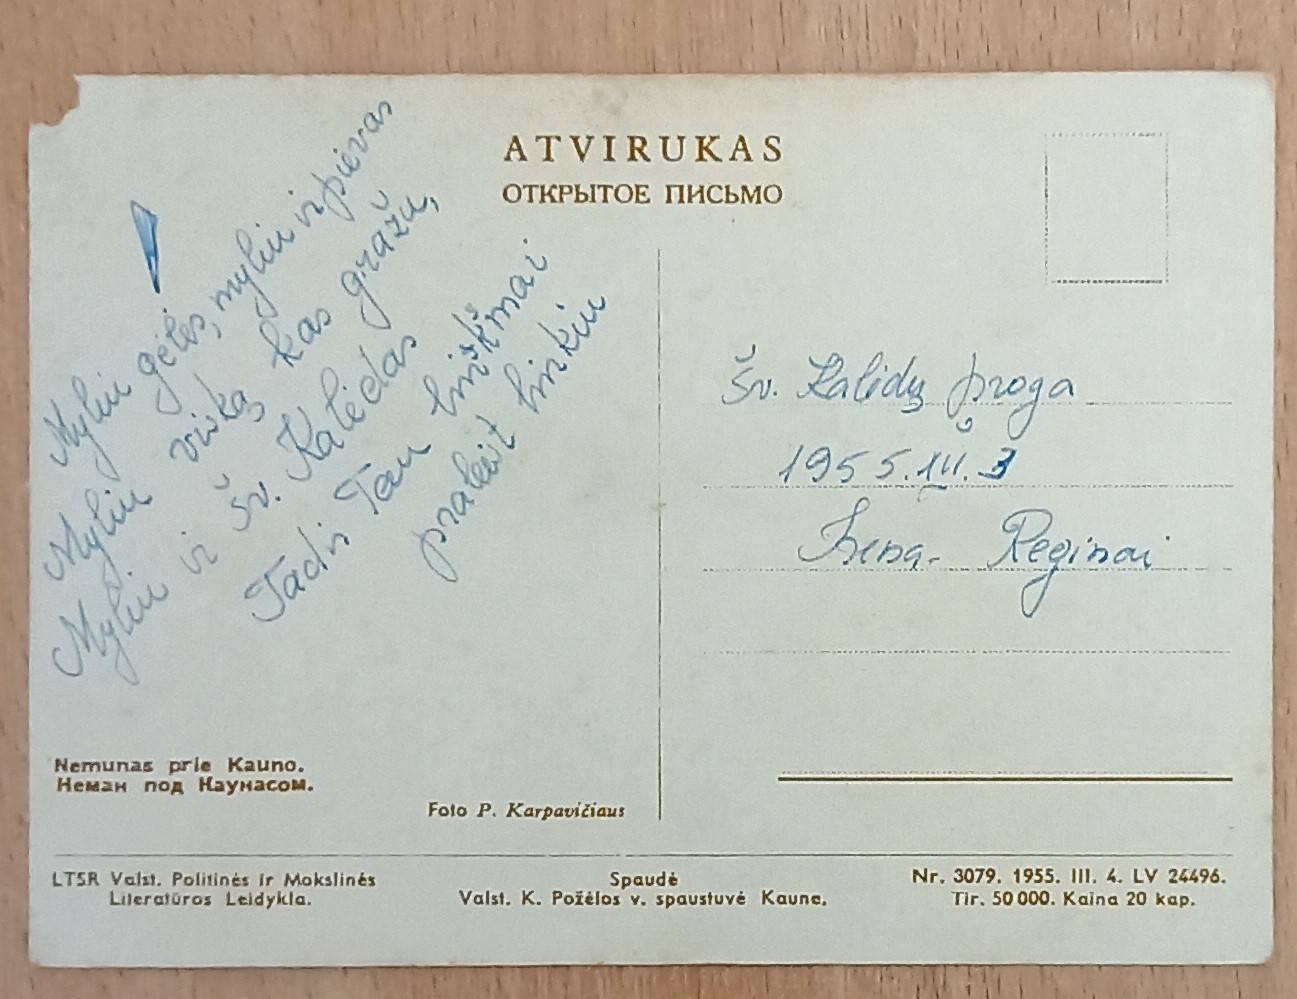 ATVIRUKAS
ОТКРЫТОЕ ПИСЬМО
Myliu gėles, myliu ir pievas
Myliu viską kas gražu,
Myliu ir šv. Kalėdas
Tadis Tau linksmai
praleist linkiu
šv. Kalėdų proga
1955.XII.3
Irena. Reginai
Nemunas prie Kauno.
Неман под Каунасом.
Foto P. Karpavičiaus
LTSR Valst. Politinės ir Mokslinės
Literatūros Leidykla.
Spaudė
Valst. K. Požėlos v. spaustuvė Kaune.
Nr. 3079. 1955. III. 4. LV 24496.
Tir. 50 000. Kaina 20 kap.